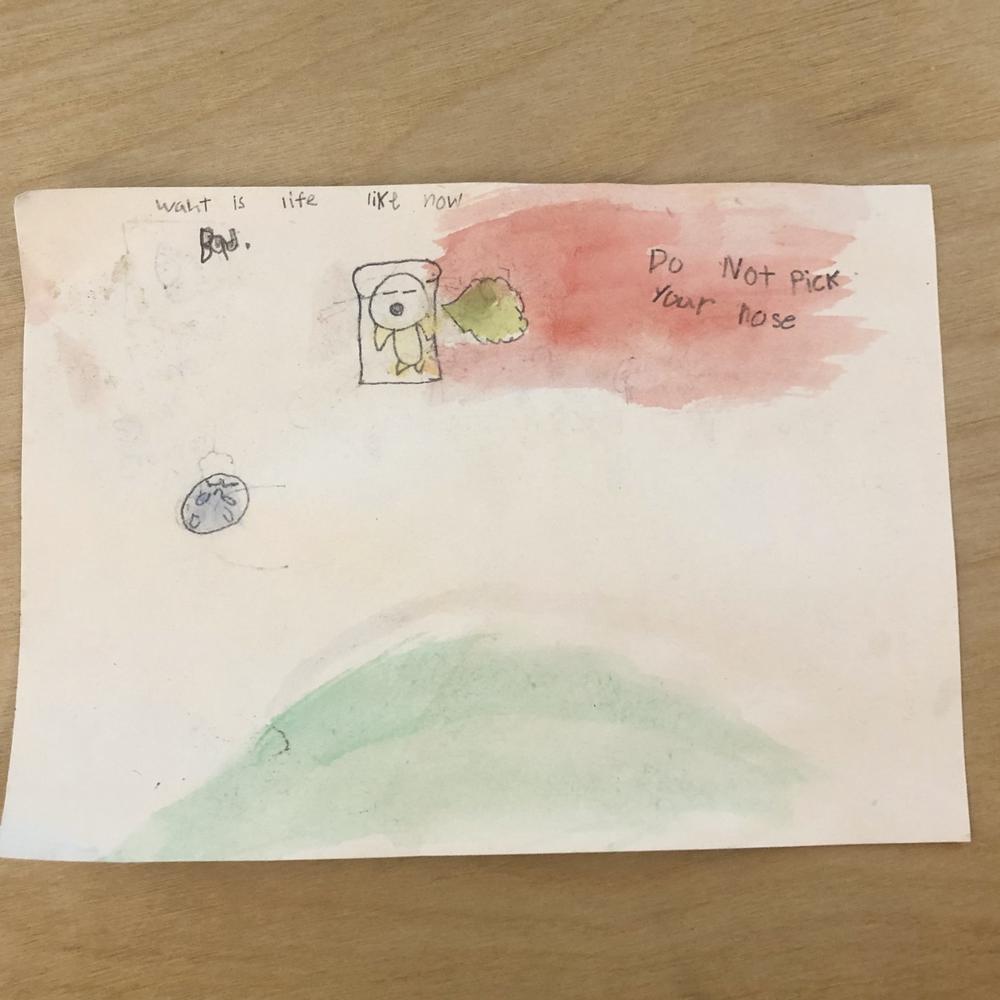 want is life like now
Bad.
Do Not Pick
Your nose